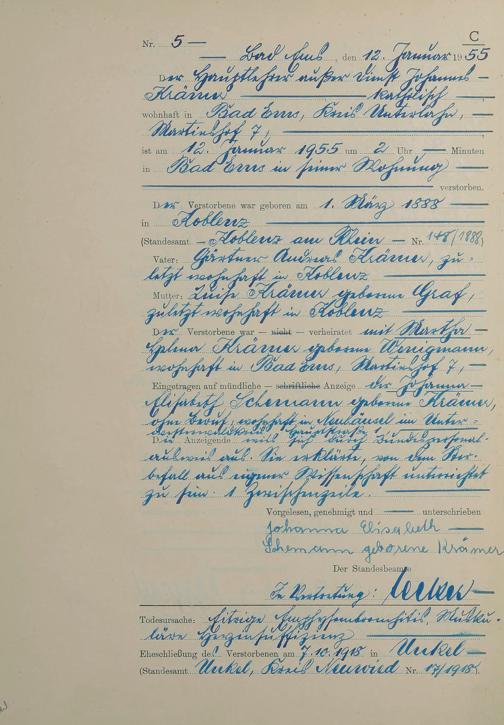 C
Nr. 5 —
— Bad Ems, den 12. Januar 1955
Der Hauptlehrer außer Dienst Johannes —
Krämer — katholisch —
wohnhaft in Bad Ems, Kreis Unterlahn, —
Martinshof 7, —
ist am 12. Januar 1955 um 2 Uhr — Minuten
in Bad Ems in seiner Wohnung —
— verstorben.
Der Verstorbene war geboren am 1. März 1888 —
in Koblenz —
(Standesamt — Koblenz am Rhein — Nr. 148/1888)
Vater: Gärtner Andreas Krämer, zu-
letzt wohnhaft in Koblenz —
Mutter: Luise Krämer geborene Graf,
zuletzt wohnhaft in Koblenz —
Der Verstorbene war — nicht — verheiratet mit Martha —
Helma Krämer geborene Wenigmann,
wohnhaft in Bad Ems, Martinshof 7, —
Eingetragen auf mündliche — schriftliche Anzeige der Johanna —
Elisabeth Schemann geborene Krämer,
ohne Beruf, wohnhaft in Neuhäusel im Unter-
westerwaldkreis, Hauptstraße
Die Anzeigende wies sich durch Bundespersonal-
ausweis aus. Sie erklärte, von dem Ster-
befall aus eigener Wissenschaft unterrichtet
zu sein. 1 Zwischenzeile. —
Vorgelesen, genehmigt und — unterschrieben
Johanna Elisabeth —
Schemann geborene Krämer
Der Standesbeamte
In Vertretung: —
Todesursache: Eitrige Emphysembronchitis, Musku-
läre Herzinsuffizienz —
Eheschließung des Verstorbenen am 7.10.1918 in Unkel —
(Standesamt Unkel, Kreis Neuwied Nr. 17/1918).